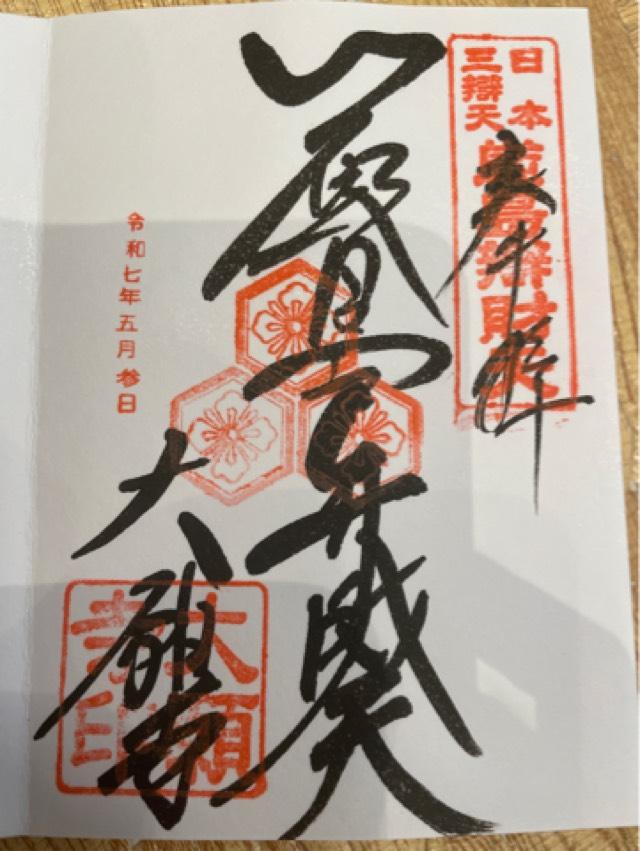 日本
三辯天
嚴島辯財天
奉拝
厳島弁財天
令和七年五月参日
大願寺
大願
寺印